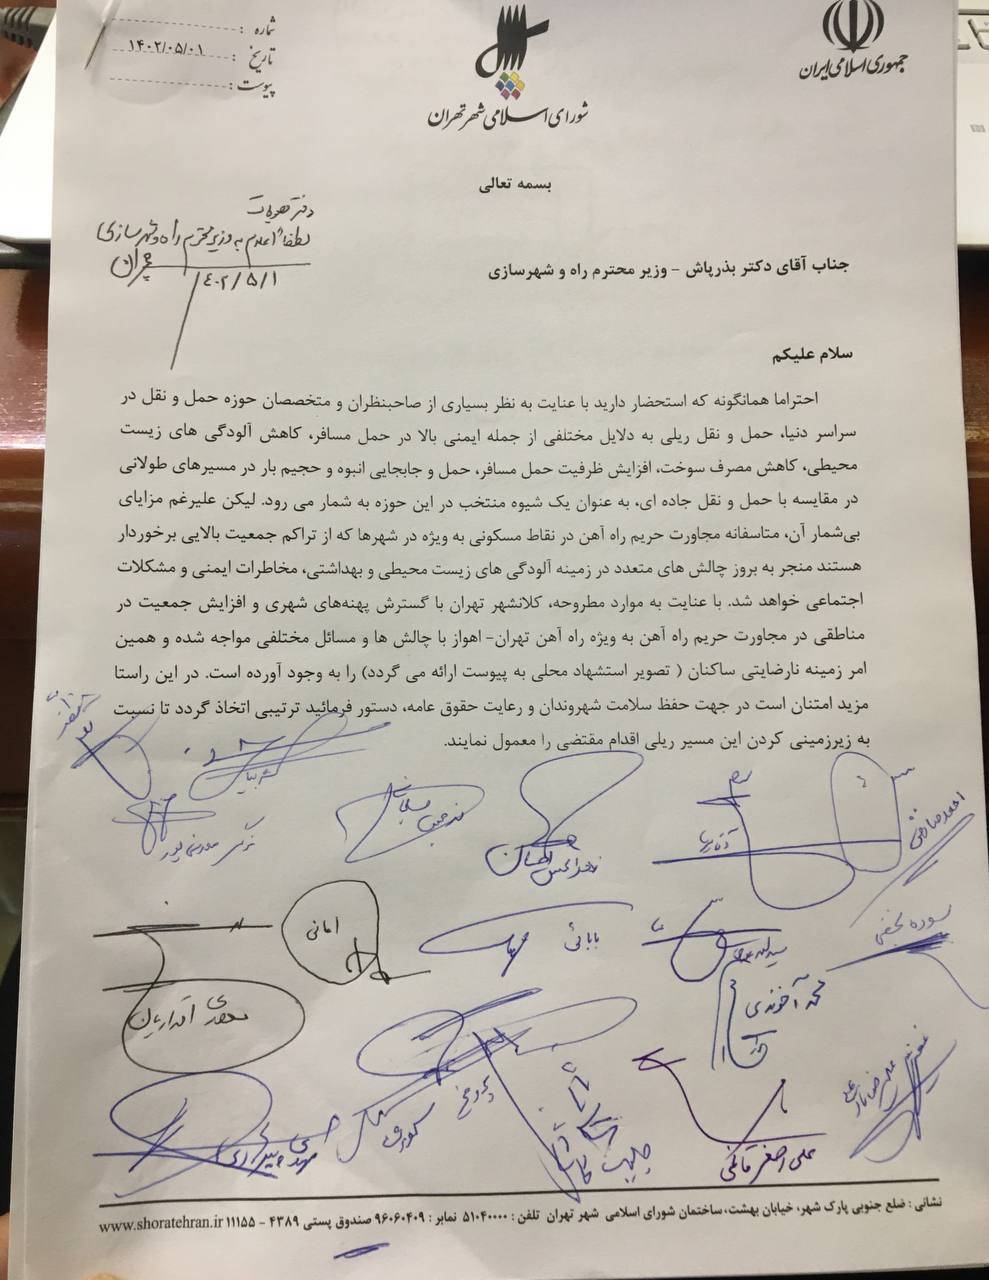 جمهوری اسلامی ایران
شورای اسلامی شهر تهران
شماره :
تاریخ : ۱۴۰۲/۰۵/۰۱
پیوست :
بسمه تعالی
لطفاً اعلام به وزیر محترم راه و شهرسازی
چمران
۱۴۰۲/۵/۱
جناب آقای دکتر بذرپاش - وزیر محترم راه و شهرسازی
سلام علیکم
احتراما همانگونه که استحضار دارید با عنایت به نظر بسیاری از صاحبنظران و متخصصان حوزه حمل و نقل در
سراسر دنیا، حمل و نقل ریلی به دلایل مختلفی از جمله ایمنی بالا در حمل مسافر، کاهش آلودگی های زیست
محیطی، کاهش مصرف سوخت، افزایش ظرفیت حمل مسافر، حمل و جابجایی انبوه و حجیم بار در مسیرهای طولانی
در مقایسه با حمل و نقل جاده ای، به عنوان یک شیوه منتخب در این حوزه به شمار می رود. لیکن علیرغم مزایای
بی‌شمار آن، متاسفانه مجاورت حریم راه آهن در نقاط مسکونی به ویژه در شهرها که از تراکم جمعیت بالایی برخوردار
هستند منجر به بروز چالش های متعدد در زمینه آلودگی های زیست محیطی و بهداشتی، مخاطرات ایمنی و مشکلات
اجتماعی خواهد شد. با عنایت به موارد مطروحه، کلانشهر تهران با گسترش پهنه‌های شهری و افزایش جمعیت در
مناطقی در مجاورت حریم راه آهن به ویژه راه آهن تهران- اهواز با چالش ها و مسائل مختلفی مواجه شده و همین
امر زمینه نارضایتی ساکنان ( تصویر استشهاد محلی به پیوست ارائه می گردد) را به وجود آورده است. در این راستا
مزید امتنان است در جهت حفظ سلامت شهروندان و رعایت حقوق عامه، دستور فرمائید ترتیبی اتخاذ گردد تا نسبت
به زیرزمینی کردن این مسیر ریلی اقدام مقتضی را معمول نمایند.
احمد صادقی
نرگس معدنی پور
سوده نجفی
بابائی
امانی
محمد آخوندی
مهدی اقراریان
علی اصغر قائمی
مهدی پیرهادی
نشانی : ضلع جنوبی پارک شهر، خیابان بهشت، ساختمان شورای اسلامی شهر تهران تلفن : ۵۱۰۴۰۰۰۰ نمابر : ۹۶۰۶۰۴۰۹ صندوق پستی ۴۳۸۹ - ۱۱۱۵۵ www.shoratehran.ir